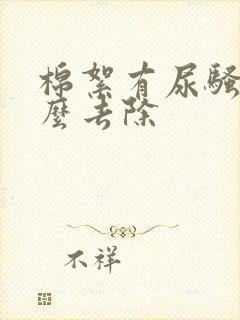 棉絮有尿骚
么去除
不祥